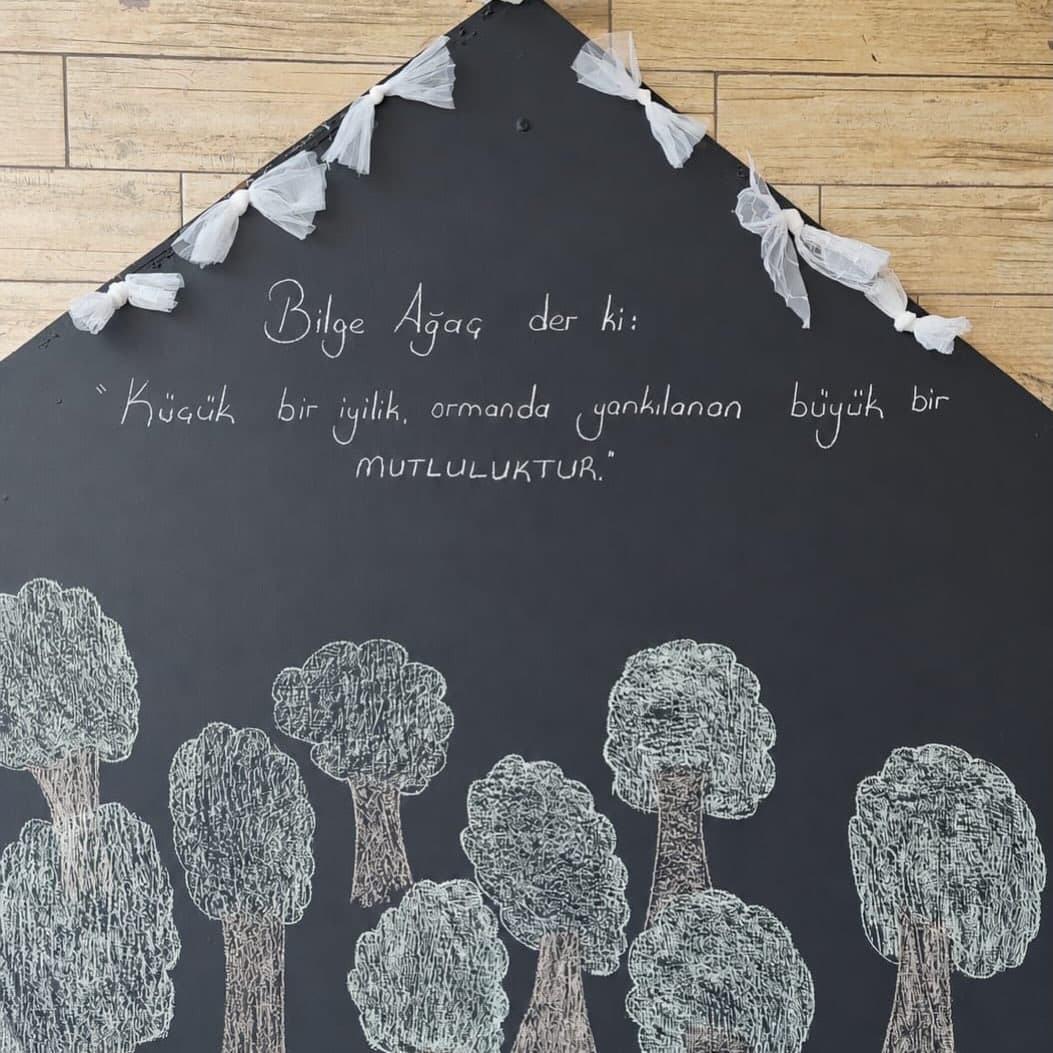 Bilge Ağaç der ki:
"Küçük bir iyilik, ormanda yankılanan büyük bir
MUTLULUKTUR."